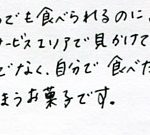 でも食べられるのに
サービスエリアで見かけて
でなく、自分で食べた
まうお菓子です。